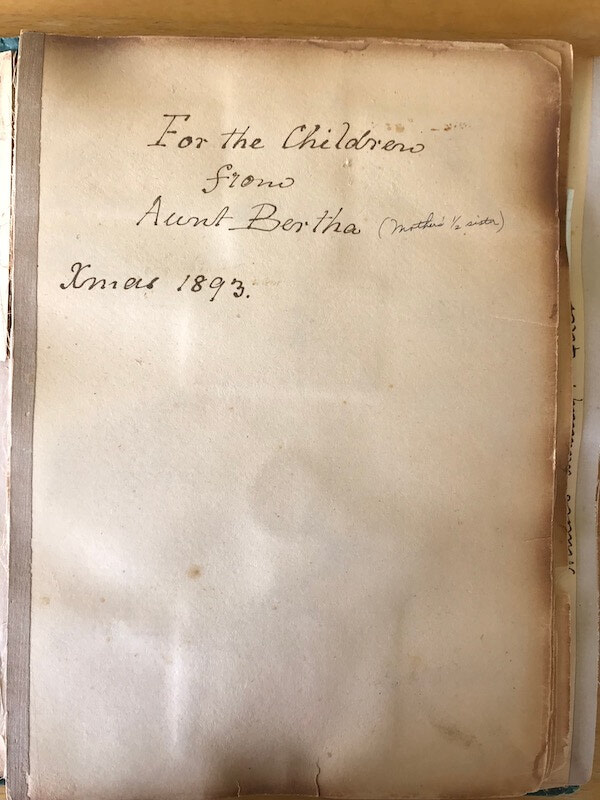 For the Children
from
Aunt Bertha (Mother's ½ sister)
Xmas 1893.